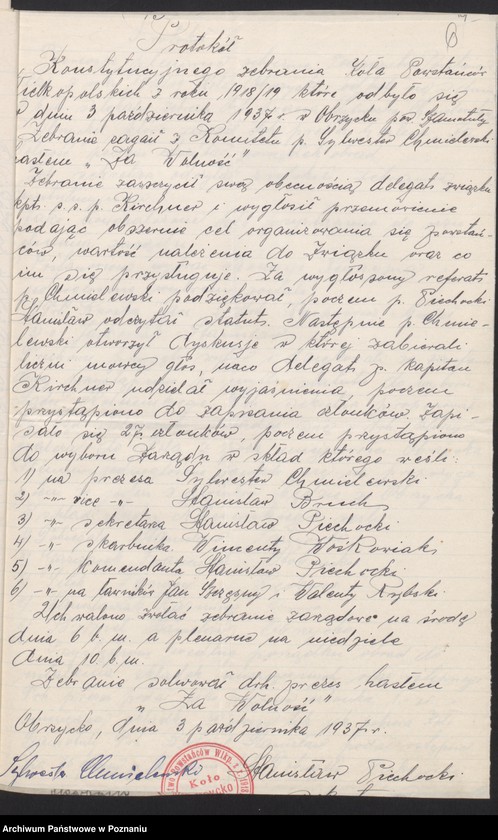 6
Protokół
Konstytucyjnego zebrania Koła Powstańców
Wielkopolskich z roku 1918/19 które odbyło się
w dniu 3 października 1937 r. w Obrzycku pow. Szamotuły
Zebranie zagaił z Komitetu p. Sylwester Chmielewski
hasłem „Za Wolność"
Zebranie zaszczycił swą obecnością delegat związku
kpt. s.s. p. Kirchner i wygłosił przemówienie
podając obszernie cel organizowania się powstań-
ców, wartość należenia do Związku oraz co
im się przysługuje. Za wygłoszony referat
p. Chmielewski podziękował, poczem p. Piechocki
Stanisław odczytał statut. Następnie p. Chmie-
lewski otworzył dyskusję w której zabierali
liczni mówcy głos, na co delegat p. kapitan
Kirchner udzielał wyjaśnienia, poczem
przystąpiono do zapisania członków. Zapi-
sało się 27 członków, poczem przystąpiono
do wyboru Zarządu w skład którego weśli:
1) na prezesa Sylwester Chmielewski
2) -"- vice -"- Stanisław
3) -"- sekretarza Stanisław Piechocki
4) -"- skarbnika Wincenty
5) -"- Komendanta Stanisław Piechocki
6) -"- na ławników Jan i Walenty Rybski
Uchwalono zwołać zebranie zarządowe na środę
dnia 6 b.m. a plenarne na niedzielę
dnia 10. b.m.
Zebranie solwował drh. prezes hasłem
„Za Wolność"
Obrzycko, dnia 3 października 1937 r.
Sylwester Chmielewski Stanisław Piechocki
Powstańców Wlkp. z r. 1918
Koło
Archiwum Państwowe w Poznaniu